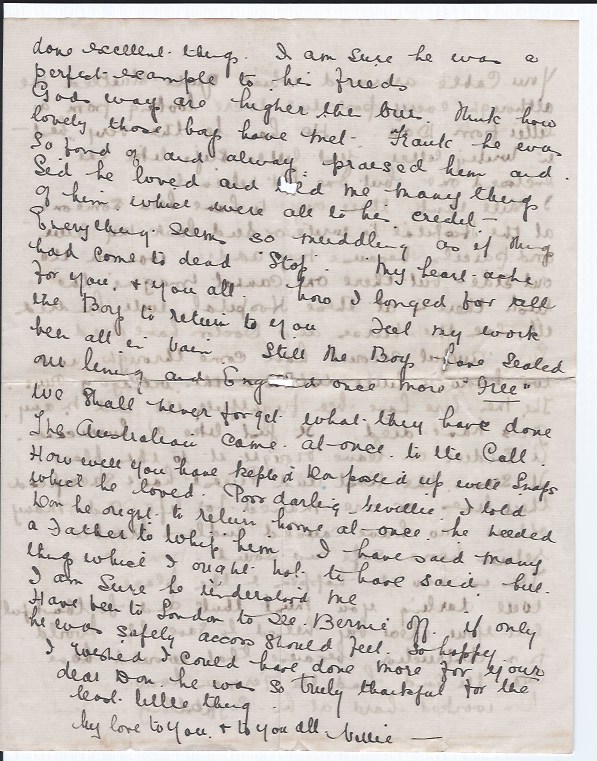 done excellent things. I am sure he was a
perfect example to his frieds
Gods way are higher the ours. Think how
lovely those boys have met. Frank he was
so fond of and alway praised him and
Sed he loved and told me many things
of him which were all to his credit —
Everything seems so muddling as if thing
had come to dead "Stop". My heart aches
for you, & you all. how I longed for all
the Boys to return to you Feel my work
been all in vain Still the Boys have Sealed
our living and England once more "Free"
We shall never forget what they have done
The Australian came at once to the Call.
How well you have kepted Don posted up with Snaps
which he loved. Poor darling Nevillie I told
Don he ought to return home at once he needed
a Father to whip him I have said many
things which I ought not to have said but
I am sure he understood me
Have been to London to see Bernie off. if only
he was safely accoss should feel so happy
I wished I could have done more for your
dear Don. he was so truly thankful for the
least little thing.
My love to You, & to you all Nellie —